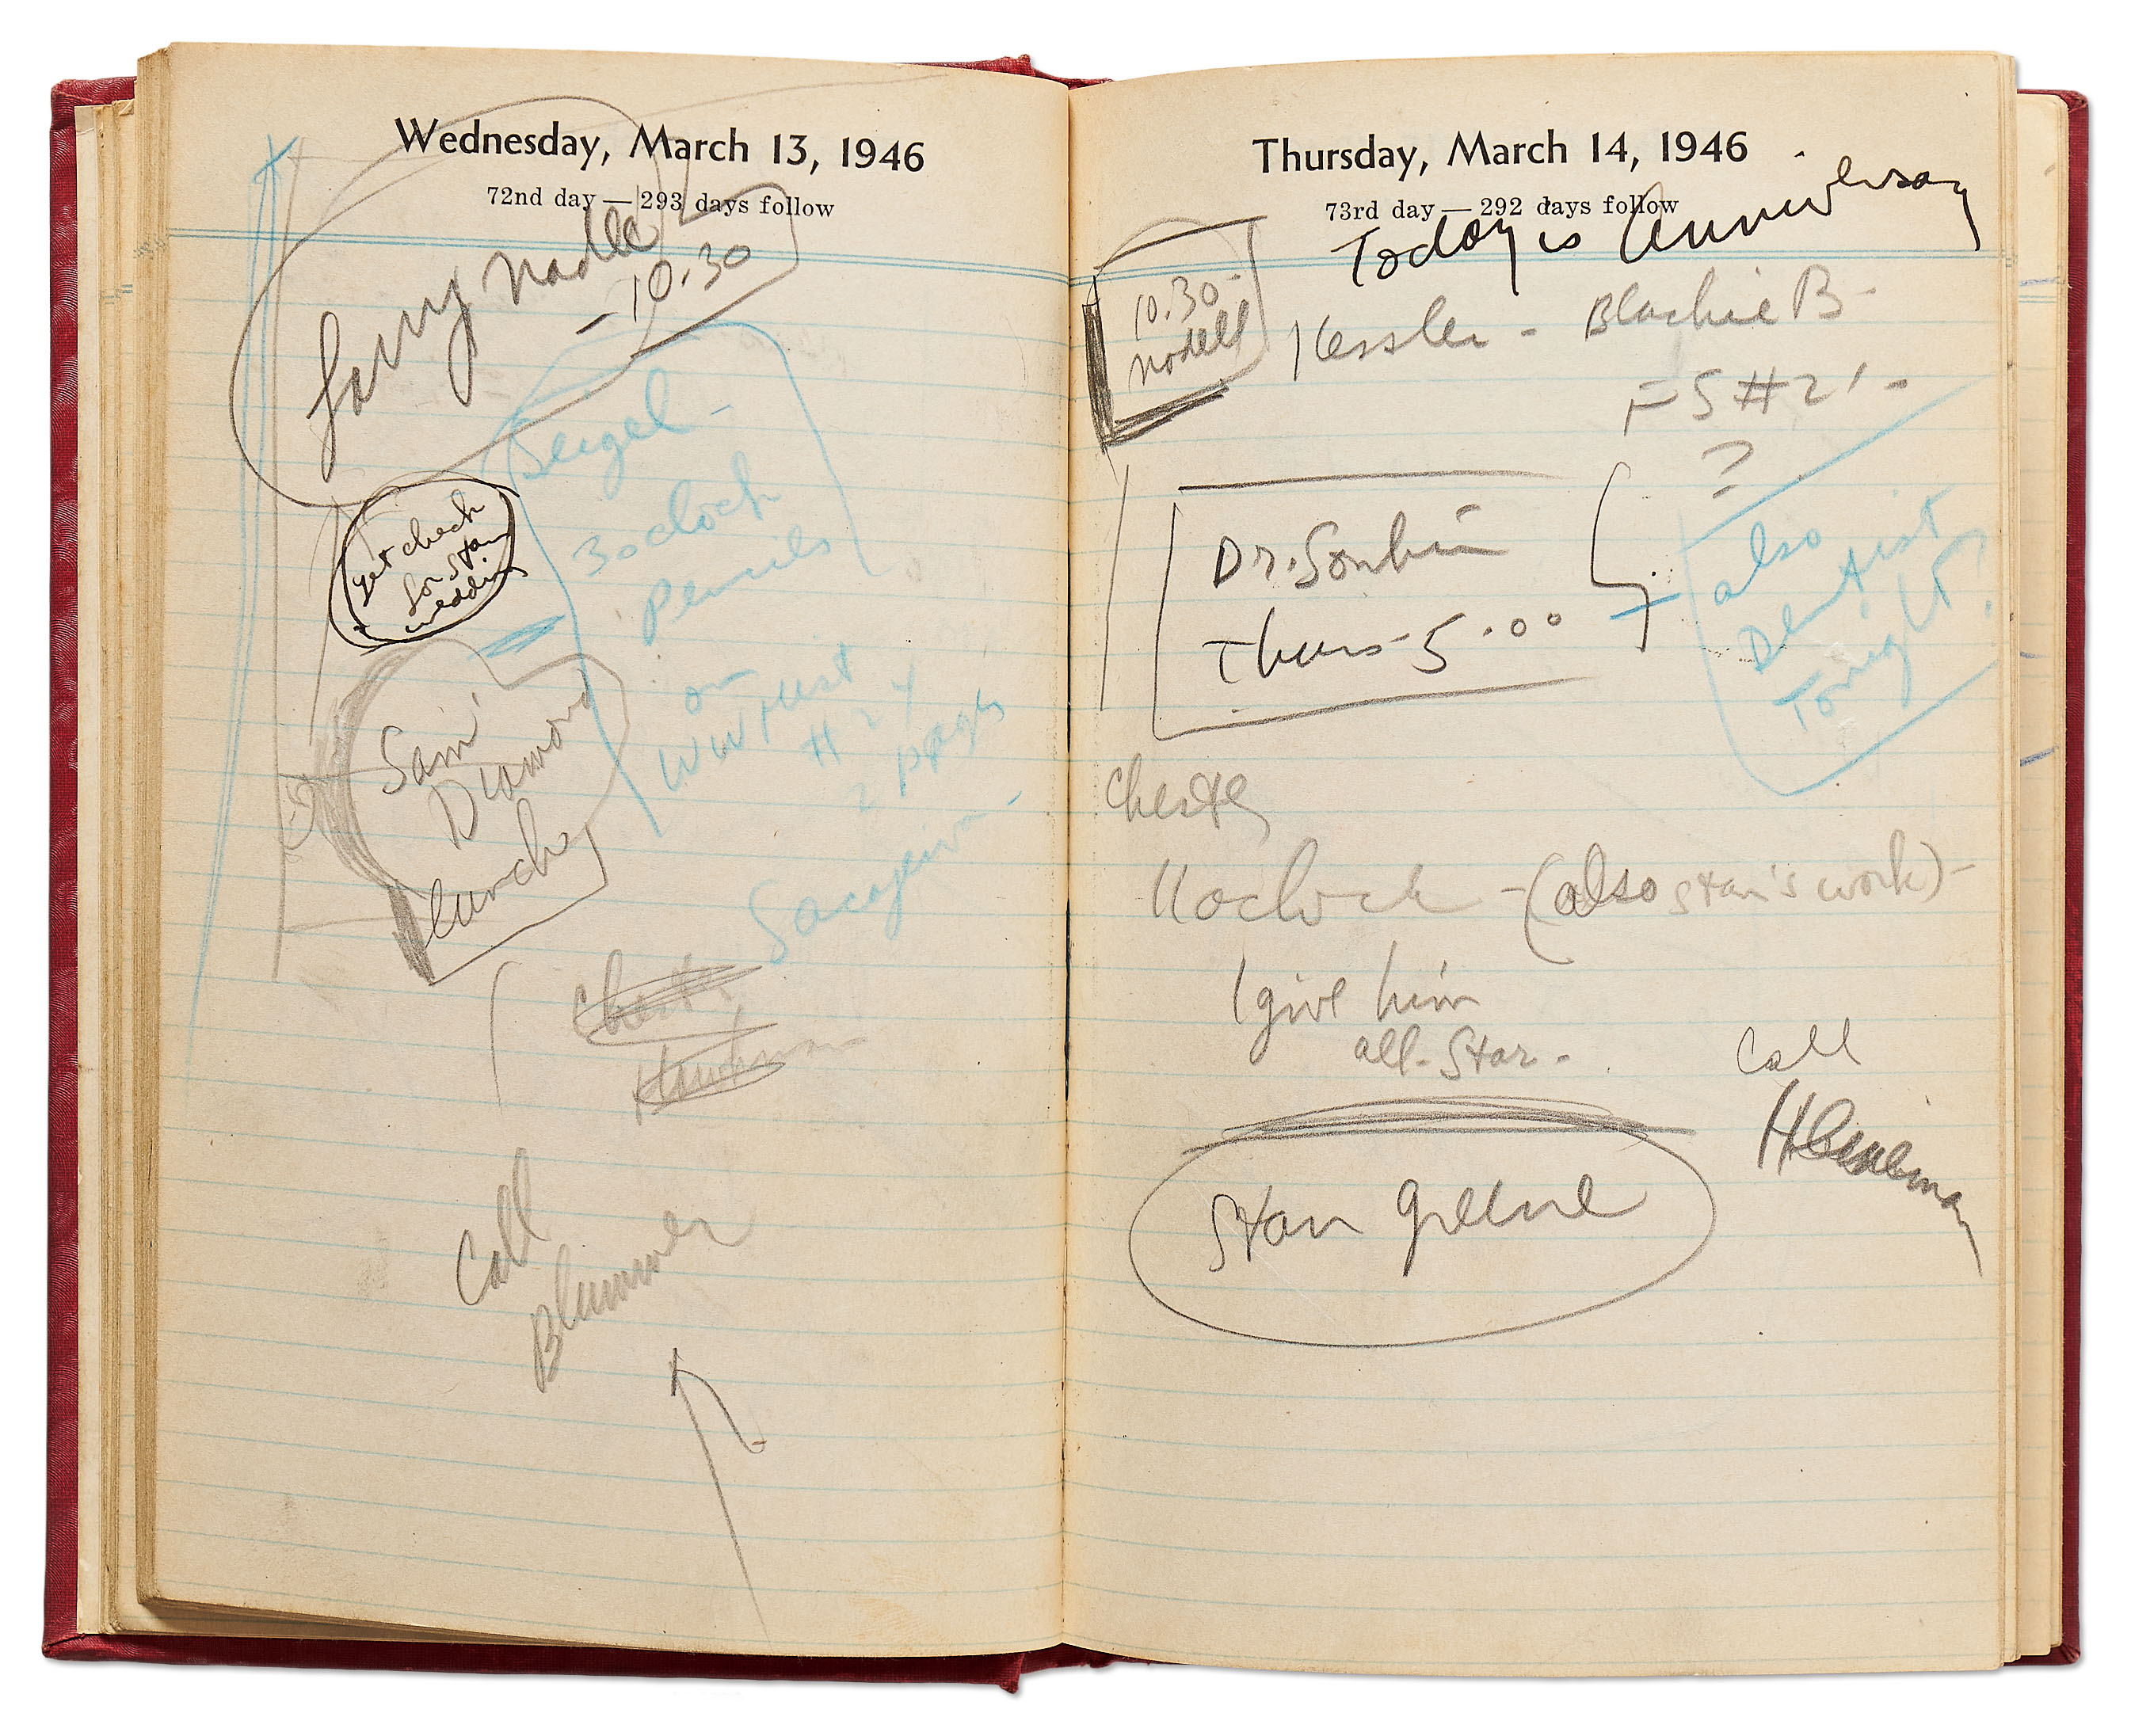 Wednesday, March 13, 1946
72nd day — 293 days follow
Larry Nadle
- 10.30
Seigel -
3 oclock
Pencils
on
WW
#24
2 pages
Sacajewa -
get check
for Stan
weddin
Sam
Diamond
lunch
Call
Blummer
Thursday, March 14, 1946
73rd day — 292 days follow
Today is Anniversary
10.30 -
nodell
Kessler - Blackie B -
FS #21 -
?
Dr. Sorkin
Thurs - 5.00
also
Dentist
Tonight
Chester
11 oclock - (also Stan's work) -
I give him
all-Star -
Call
Stan Greene